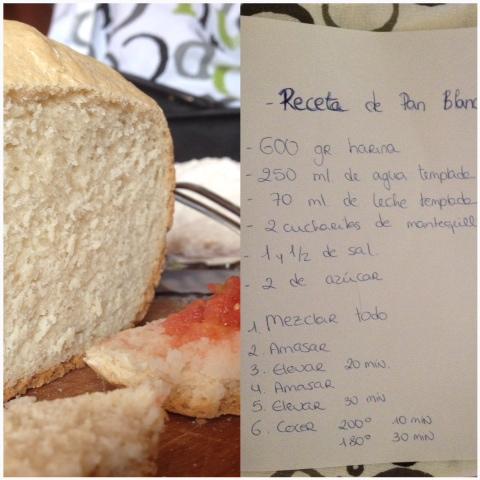 - Receta de Pan Blanc
- 600 gr harina
- 250 ml de agua templada
- 70 ml de leche templada
- 2 cucharitas de mantequill
- 1 y 1/2 de sal.
- 2 de azúcar
1. Mezclar todo
2. Amasar
3. Elevar 20 min.
4. Amasar
5. Elevar 30 min
6. Cocer 200º 10 min
180º 30 min